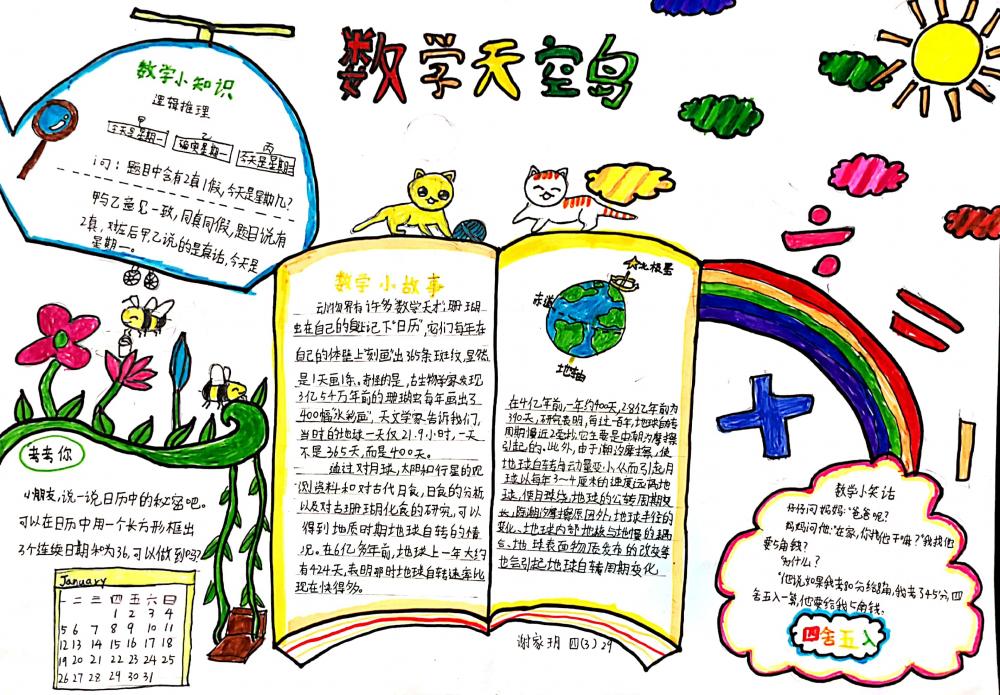 数学天空岛
数学小知识
逻辑推理
甲
今天是星期一
乙
确实是星期一
丙
今天是星期三
问：题目中含有2真1假，今天是星期几？
甲与乙意见一致，同真同假，题目说有
2真，对左后甲、乙说的是真话，今天是
星期一。
考考你
小朋友，说一说，日历中的秘密吧。
可以在日历中用一个长方形框出
3个连续日期和为36，可以做到吗？
January
一 二 三 四 五 六 日
1 2 3 4
5 6 7 8 9 10 11
12 13 14 15 16 17 18
19 20 21 22 23 24 25
26 27 28 29 30 31
数学小故事
动物界有许多数学天才，珊瑚
虫在自己的身上记下"日历"，它们每年在
自己的体壁上"刻画"出365条斑纹，显然
是1天画1条。奇怪的是，古生物学家发现
3亿5千万年前的珊瑚虫每年画出了
400幅"水彩画"，天文学家告诉我们，
当时的地球一天仅21.9小时，一天
不是365天，而是400天。
通过对月球、太阳和行星的观
测资料和对古代月食、日食的分析
以及对古珊瑚化食的研究，可以
得到地质时期地球自转的情
况。在6亿多年前，地球上一年大约
有424天，表明那时地球自转速率比
现在快得多。
北极星
赤道
地轴
在4亿年前，一年约400天，2.8亿年前为
390天，研究表明，每过一百年，地球自转
周期慢近2毫秒，它主要是由潮汐摩擦
引起的。此外，由于潮汐摩擦，使
地球自转角动量变小，从而引起月
球以每年3～4厘米的速度远离地
球，使月球绕地球的公转周期变
长，除潮汐摩擦原因外，地球半径的
变化、地球内部地核与地慢的耦
合、地球表面物质分布的改变等
也会引起地球自转周期变化
谢家玥 四(3) 29
数学小笑话
仔仔问妈妈："爸爸呢？"
妈妈问他："在家，你找他干嘛？"我找他
要5角钱？
为什么？
"他说如果我考80分给8角，我考了45分，四
舍五入一算，他要给我5角钱。
四舍五入